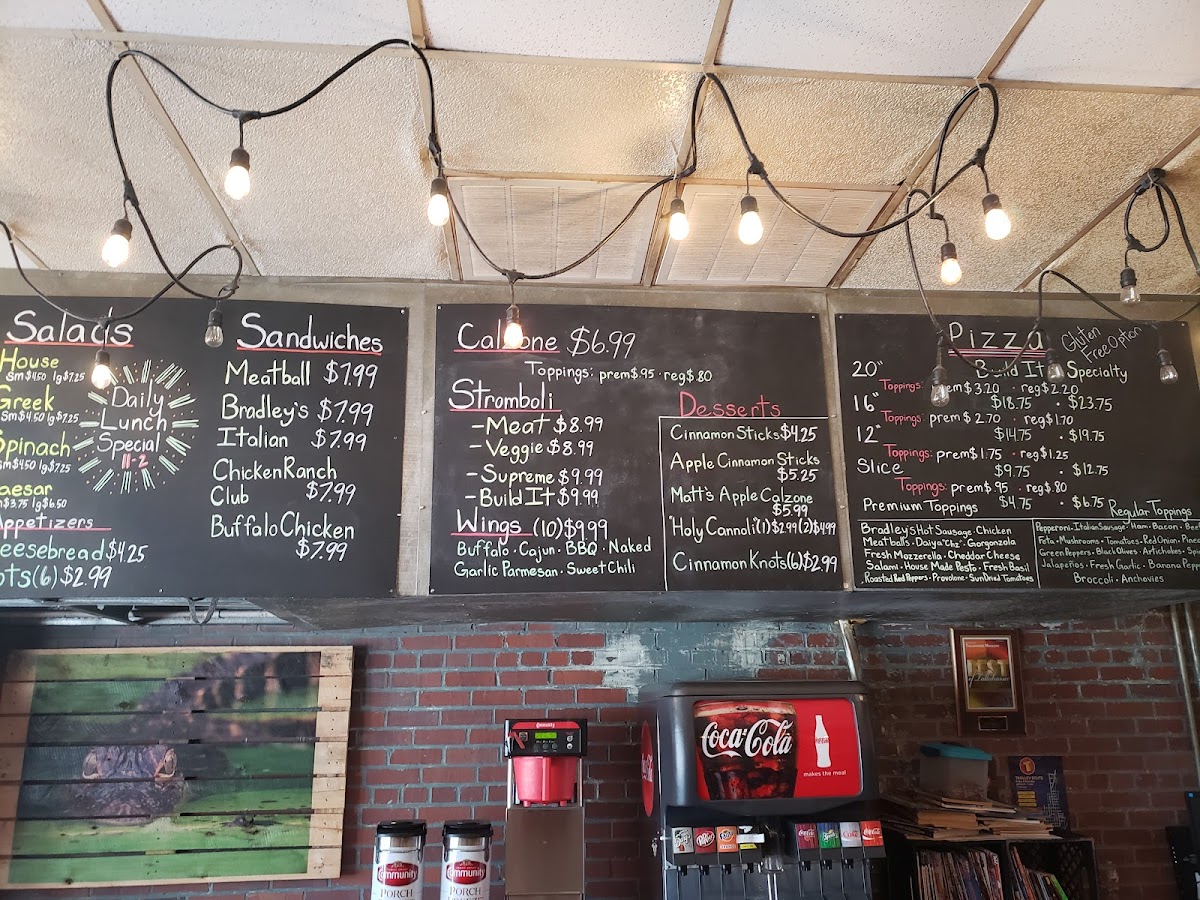 Salads
House
Sm $4.50 lg $7.25
Greek
Sm $4.50 lg $7.25
Spinach
Sm $4.50 lg $7.25
aesar
$3.75 lg $6.50
Daily
Lunch
Special
11-2
Appetizers
eesebread $4.25
ots (6) $2.99
Sandwiches
Meatball $7.99
Bradley's $7.99
Italian $7.99
Chicken Ranch
Club $7.99
Buffalo Chicken
$7.99
Calzone $6.99
Toppings: prem $.95 · reg $.80
Stromboli
- Meat $8.99
- Veggie $8.99
- Supreme $9.99
- Build It $9.99
Wings (10) $9.99
Buffalo · Cajun · BBQ · Naked
Garlic Parmesan · Sweet Chili
Desserts
Cinnamon Sticks $4.25
Apple Cinnamon Sticks
$5.25
Matt's Apple Calzone
$5.99
"Holy Cannoli (1) $2.99 (2) $4.99
Cinnamon Knots (6) $2.99
Pizza
Gluten
Free Option
Build It Specialty
20"
Toppings: prem $3.20 · reg $2.20
$18.75 · $23.75
16"
Toppings: prem $2.70 · reg $1.70
$14.75 · $19.75
12"
Toppings: prem $1.75 · reg $1.25
$9.75 · $12.75
Slice
Toppings: prem $.95 · reg $.80
$4.75 · $6.75
Premium Toppings
Bradley's Hot Sausage · Chicken
Meatballs · Daiya "Chz" · Gorgonzola
Fresh Mozzerella · Cheddar Cheese
Salami · House Made Pesto · Fresh Basil
Roasted Red Peppers · Provolone · Sun Dried Tomatoes
Regular Toppings
Pepperoni · Italian Sausage · Ham · Bacon
Feta · Mushrooms · Tomatoes · Red Onion
Green Peppers · Black Olives · Artichokes
Jalapeños · Fresh Garlic · Banana Pepp
Broccoli · Anchovies
Community
Community
PORCH
Community
PORCH
Coca-Cola
makes the meal
Dr Pepper
BEST